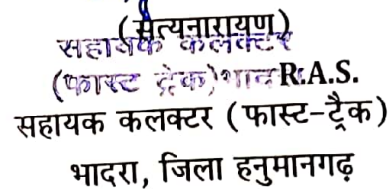 (सत्यनारायण)
सहायक कलक्टर
(फास्ट ट्रेक) R.A.S.
सहायक कलक्टर (फास्ट-ट्रैक)
भादरा, जिला हनुमानगढ़